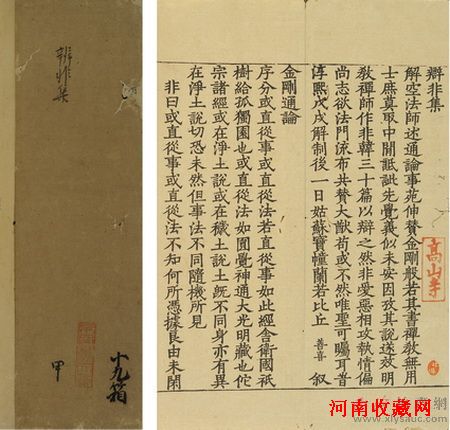 辨非集
甲
辯非集
解空法師述通論事苑伸贊金剛般若其書禪教無用
士庶莫取中間詆訿先覺義似未安因孜其説遂效明
教禪師作非韓三十篇以辯之然非愛惡相攻執情偏
尚志欲法門流布共贊大猷苟或不然唯聖可囑耳昔
淳熙戊戌解制後一日姑蘇寶幢蘭若比丘 善喜 叙
金剛通論
序分或直從事或直從法若直從事如此經舍衛國祇
樹給孤獨園也或直從法如圓覺神通大光明藏也佗
宗諸經或在淨土説或在穢土説土既不同身亦有異
在淨土説切恐未然但事法不同隨機所見
非曰或直從事或直從法不知何所憑據良由未閑
高山寺
河南收藏网
www.xlysauc.com